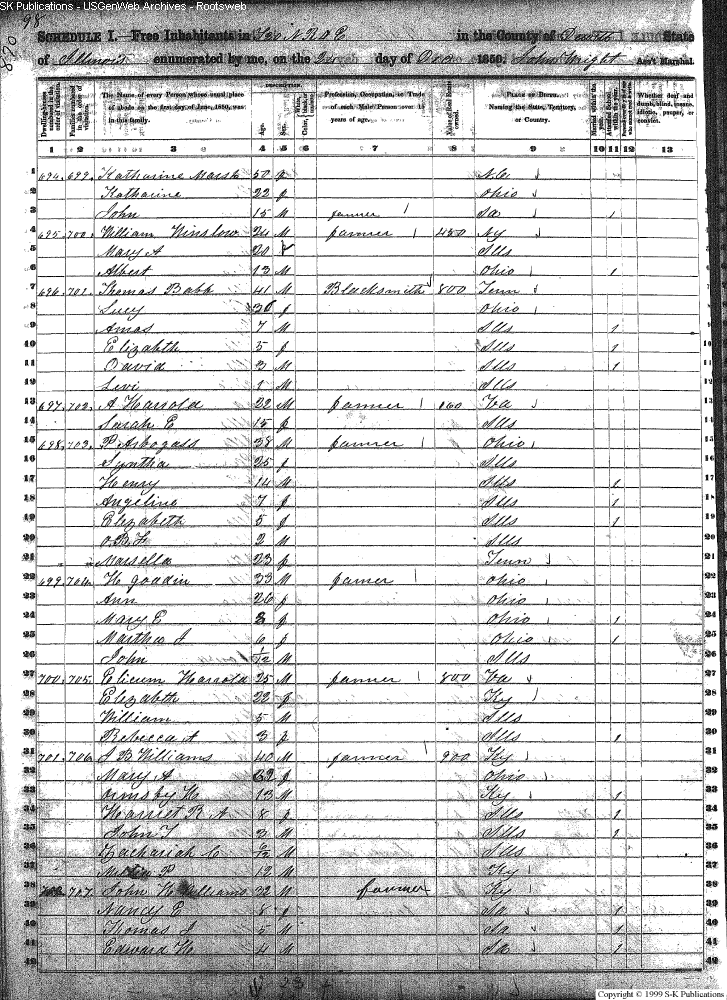 SK Publications - USGenWeb Archives - Rootsweb
98
SCHEDULE I.—Free Inhabitants in in the County of State
of Illinois enumerated by me, on the day of 1850. John Wright Ass't Marshal
DESCRIPTION.
Dwelling-houses numbered in the order of visitation.
Families numbered in the order of visitation.
The Name of every Person whose usual place of abode on the first day of June, 1850, was in this family.
Age.
Sex.
Color, White, black, or mulatto.
Profession, Occupation, or Trade of each Male Person over 15 years of age.
Value of Real Estate owned.
PLACE OF BIRTH. Naming the State, Territory, or Country.
Married within the year.
Attended School within the year.
Whether deaf and dumb, blind, insane, idiotic, pauper, or convict.
1 2 3 4 5 6 7 8 9 10 11 12 13
1 694 699 Katharine Marsh 50 f N.C.
2 Katharine 22 f Ohio
3 John 15 M farmer Ia 1
4 695 700 William Winslow 24 M farmer 450 Ny
5 Mary A 20 f Ills
6 Albert 13 M Ohio 1
7 696 701 Thomas Babb 41 M Blacksmith 800 Tenn
8 Lucy 36 f Ohio
9 Amas 7 M Ills 1
10 Elizabeth 5 f Ills 1
11 David 3 M Ills 1
12 Levi 1 M Ills
13 697 702 A Harrold 22 M farmer 160 Va
14 Sarah E 15 f Ills
15 698 703 P Arbogass 38 M farmer Ohio
16 Syntha 25 f Ills
17 Henry 14 M Ills 1
18 Angeline 7 f Ills 1
19 Elezabeth 5 f Ills 1
20 2 M Ills
21 Marsella 23 f Tenn
22 699 704 H goadin 33 M farmer Ohio
23 Ann 26 f Ohio
24 Mary E 8 f Ohio 1
25 Martha J 6 f Ohio 1
26 John 1/12 M Ills
27 700 705 Elicum Harrold 25 M farmer 800 Va
28 Elezabeth 22 f Ky
29 William 5 M Ills
30 Rebecca A 3 f Ills 1
31 701 706 J B Williams 40 M farmer 900 Ky
32 Mary A f Ohio
33 Ormsby H 13 M Ky 1
34 Harriet R A 8 f Ills 1
35 John T 3 M Ills 1
36 Zachariah C 6/12 M Ills
37 P 19 M Ky
38 702 707 John H Williams 32 M farmer Ky
39 Nancy E 8 f Ia 1
40 Thomas J 5 M Ia 1
41 Edward H 4 M Ia 1
42
Copyright © 1999 S-K Publications